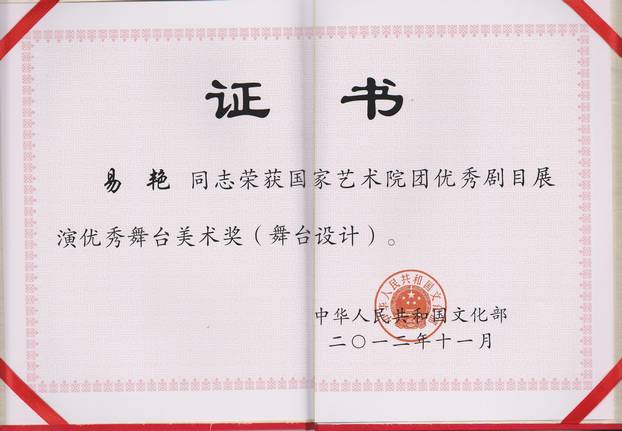 证书
易艳 同志荣获国家艺术院团优秀剧目展
演优秀舞台美术奖（舞台设计）。
中华人民共和国文化部
中华人民共和国文化部
二〇一二年十一月